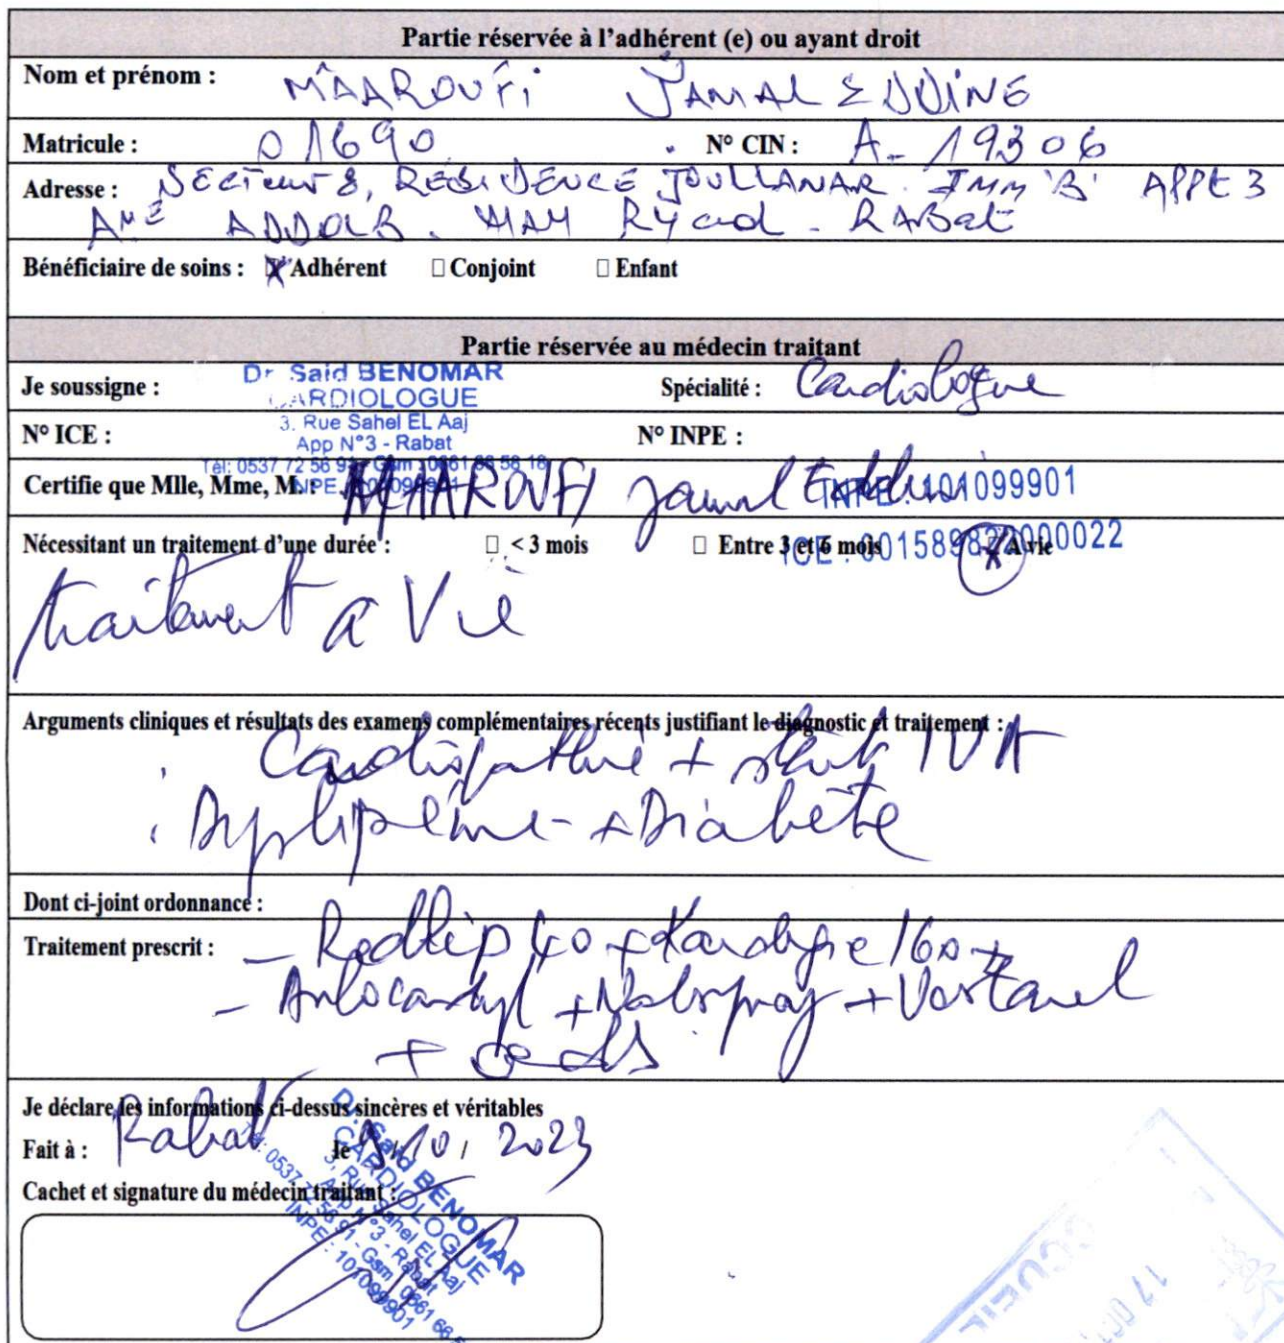 Partie réservée à l'adhérent (e) ou ayant droit
Nom et prénom : MAAROUFI JAMAL EDDINE
Matricule : 01690 N° CIN : A- 19306
Adresse : SECTEUR 8, RESIDENCE JOULLANAR. IMM 'B' APPT 3
AME ADDOLB. HAY RYad - RABat
Bénéficiaire de soins : ☒ Adhérent □ Conjoint □ Enfant
Partie réservée au médecin traitant
Je soussigne : Dr Said BENOMAR Spécialité : Cardiologue
CARDIOLOGUE
3. Rue Sahel EL Aaj
N° ICE : N° INPE :
App N°3 - Rabat
Tél: 0537 72 56 91 - Gsm : 0661 66 58 18
INPE : 101099901
Certifie que Mlle, Mme, M. : MAAROUFI Jamal Eddine INPE : 101099901
Nécessitant un traitement d'une durée : □ < 3 mois □ Entre 3 et 6 mois ☒ A vie
ICE : 0015898 000022
traitement a Vie
Arguments cliniques et résultats des examens complémentaires récents justifiant le diagnostic et traitement :
Cardiopathie + stent IVA
Dyslipémie + Diabète
Dont ci-joint ordonnance :
Traitement prescrit : - Redlip 40 + Kardegic 160 +
- Antocardyl + + Vastarel
+
Je déclare les informations ci-dessus sincères et véritables
Fait à : Rabat le 9/10/2023
Cachet et signature du médecin traitant :
Dr. Said BENOMAR
CARDIOLOGUE
3, Rue Sahel EL Aaj
App N°3 - Rabat
Tél: 0537 72 56 91 - Gsm : 0661 66
INPE : 101099901
17